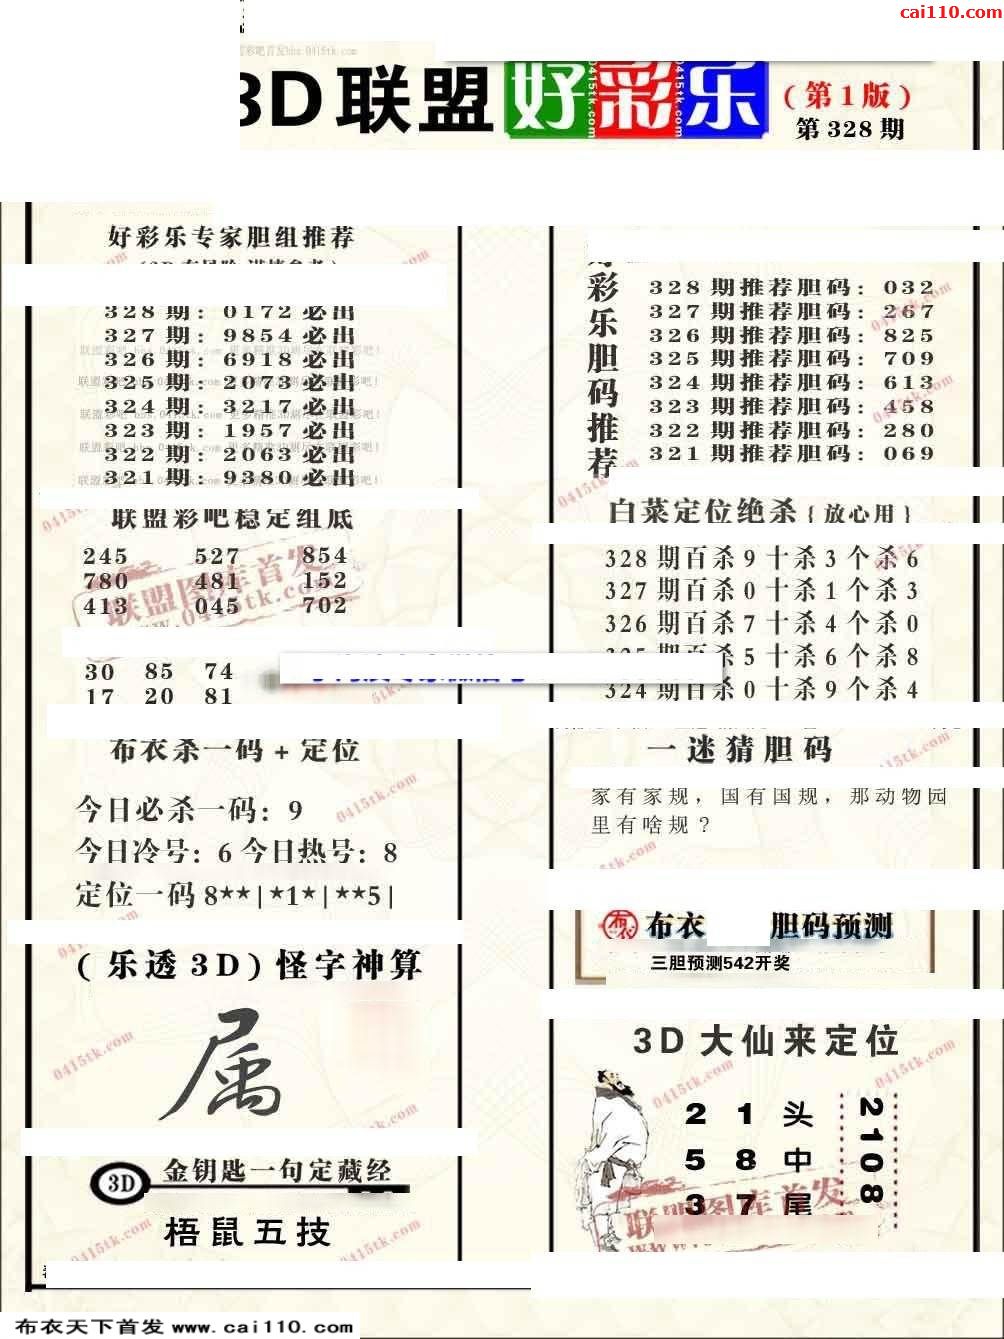 cai110.com
3D联盟 好彩乐 (第1版)
第328期
好彩乐专家胆组推荐
328期: 0172必出
327期: 9854必出
326期: 6918必出
325期: 2073必出
324期: 3217必出
323期: 1957必出
322期: 2063必出
321期: 9380必出
联盟彩吧稳定组底
245 527 854
780 481 152
413 045 702
30 85 74
17 20 81
布衣杀一码+定位
今日必杀一码: 9
今日冷号: 6 今日热号: 8
定位一码8**|*1*|**5|
(乐透3D)怪字神算
属
3D 金钥匙一句定藏经
梧鼠五技
彩乐胆码推荐
328期推荐胆码: 032
327期推荐胆码: 267
326期推荐胆码: 825
325期推荐胆码: 709
324期推荐胆码: 613
323期推荐胆码: 458
322期推荐胆码: 280
321期推荐胆码: 069
白菜定位绝杀{放心用}
328期百杀9十杀3个杀6
327期百杀0十杀1个杀3
326期百杀7十杀4个杀0
杀5十杀6个杀8
324期百杀0十杀9个杀4
一迷猜胆码
家有家规，国有国规，那动物园
里有啥规？
布衣 布衣 胆码预测
三胆预测542开奖
3D大仙来定位
2 1 头
5 8 中
3 7 尾
2108
联盟图库首发
0415tk.com
布衣天下首发 www.cai110.com